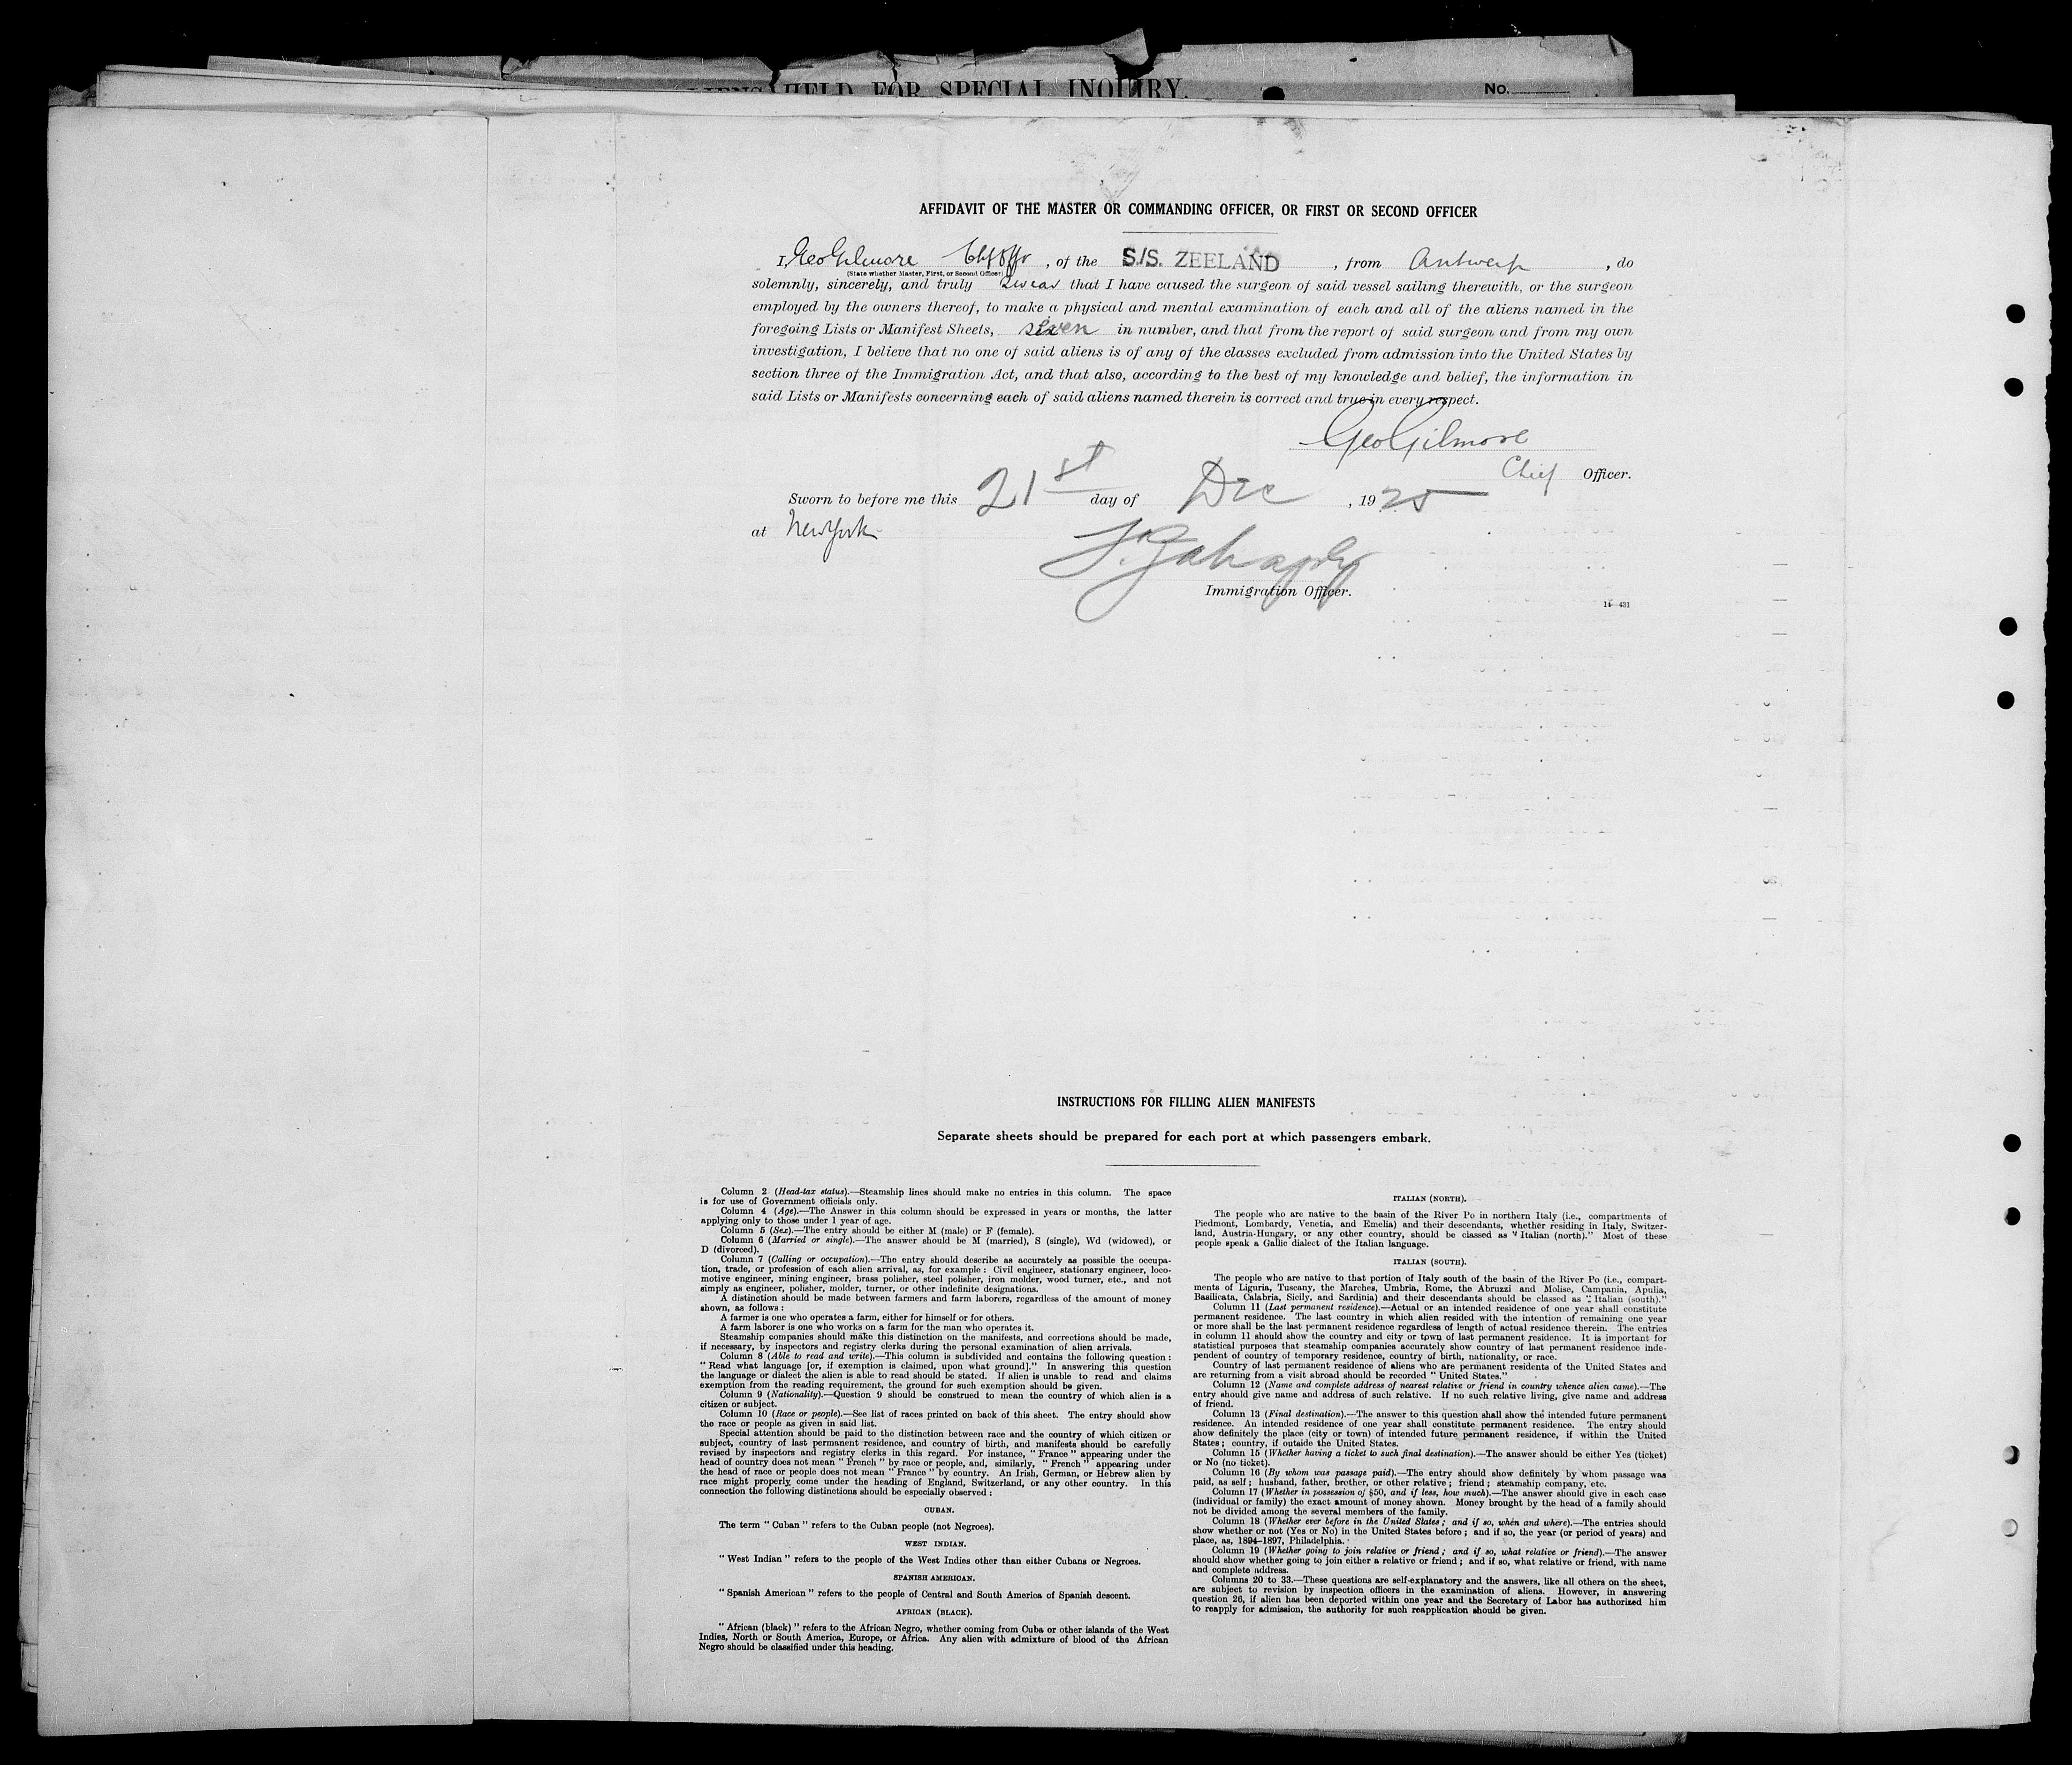 ALIENS HELD FOR SPECIAL INQUIRY.
No.
AFFIDAVIT OF THE MASTER OR COMMANDING OFFICER, OR FIRST OR SECOND OFFICER
I, Geo Gilmore Chf Offr, of the S/S. ZEELAND, from Antwerp, do
(State whether Master, First, or Second Officer)
solemnly, sincerely, and truly swear that I have caused the surgeon of said vessel sailing therewith, or the surgeon
employed by the owners thereof, to make a physical and mental examination of each and all of the aliens named in the
foregoing Lists or Manifest Sheets, seven in number, and that from the report of said surgeon and from my own
investigation, I believe that no one of said aliens is of any of the classes excluded from admission into the United States by
section three of the Immigration Act, and that also, according to the best of my knowledge and belief, the information in
said Lists or Manifests concerning each of said aliens named therein is correct and true in every respect.
Geo Gilmore
Chief Officer.
Sworn to before me this 21st day of Dec, 1925
at New York
Immigration Officer.
14—431
INSTRUCTIONS FOR FILLING ALIEN MANIFESTS
Separate sheets should be prepared for each port at which passengers embark.
Column 2 (Head-tax status).—Steamship lines should make no entries in this column. The space
is for use of Government officials only.
Column 4 (Age).—The Answer in this column should be expressed in years or months, the latter
applying only to those under 1 year of age.
Column 5 (Sex).—The entry should be either M (male) or F (female).
Column 6 (Married or single).—The answer should be M (married), S (single), Wd (widowed), or
D (divorced).
Column 7 (Calling or occupation).—The entry should describe as accurately as possible the occupa-
tion, trade, or profession of each alien arrival, as, for example: Civil engineer, stationary engineer, loco-
motive engineer, mining engineer, brass polisher, steel polisher, iron molder, wood turner, etc., and not
simply as engineer, polisher, molder, turner, or other indefinite designations.
A distinction should be made between farmers and farm laborers, regardless of the amount of money
shown, as follows:
A farmer is one who operates a farm, either for himself or for others.
A farm laborer is one who works on a farm for the man who operates it.
Steamship companies should make this distinction on the manifests, and corrections should be made,
if necessary, by inspectors and registry clerks during the personal examination of alien arrivals.
Column 8 (Able to read and write).—This column is subdivided and contains the following question:
"Read what language [or, if exemption is claimed, upon what ground]." In answering this question
the language or dialect the alien is able to read should be stated. If alien is unable to read and claims
exemption from the reading requirement, the ground for such exemption should be given.
Column 9 (Nationality).—Question 9 should be construed to mean the country of which alien is a
citizen or subject.
Column 10 (Race or people).—See list of races printed on back of this sheet. The entry should show
the race or people as given in said list.
Special attention should be paid to the distinction between race and the country of which citizen or
subject, country of last permanent residence, and country of birth, and manifests should be carefully
revised by inspectors and registry clerks in this regard. For instance, "France" appearing under the
head of country does not mean "French" by race or people, and, similarly, "French" appearing under
the head of race or people does not mean "France" by country. An Irish, German, or Hebrew alien by
race might properly come under the heading of England, Switzerland, or any other country. In this
connection the following distinctions should be especially observed:
CUBAN.
The term "Cuban" refers to the Cuban people (not Negroes).
WEST INDIAN.
"West Indian" refers to the people of the West Indies other than either Cubans or Negroes.
SPANISH AMERICAN.
"Spanish American" refers to the people of Central and South America of Spanish descent.
AFRICAN (BLACK).
"African (black)" refers to the African Negro, whether coming from Cuba or other islands of the West
Indies, North or South America, Europe, or Africa. Any alien with admixture of blood of the African
Negro should be classified under this heading.
ITALIAN (NORTH).
The people who are native to the basin of the River Po in northern Italy (i.e., compartments of
Piedmont, Lombardy, Venetia, and Emelia) and their descendants, whether residing in Italy, Switzer-
land, Austria-Hungary, or any other country, should be classed as "Italian (north)." Most of these
people speak a Gallic dialect of the Italian language.
ITALIAN (SOUTH).
The people who are native to that portion of Italy south of the basin of the River Po (i.e., compart-
ments of Liguria, Tuscany, the Marches, Umbria, Rome, the Abruzzi and Molise, Campania, Apulia,
Basilicata, Calabria, Sicily, and Sardinia) and their descendants should be classed as "Italian (south)."
Column 11 (Last permanent residence).—Actual or an intended residence of one year shall constitute
permanent residence. The last country in which alien resided with the intention of remaining one year
or more shall be the last permanent residence regardless of length of actual residence therein. The entries
in column 11 should show the country and city or town of last permanent residence. It is important for
statistical purposes that steamship companies accurately show country of last permanent residence inde-
pendent of country of temporary residence, country of birth, nationality, or race.
Country of last permanent residence of aliens who are permanent residents of the United States and
are returning from a visit abroad should be recorded "United States."
Column 12 (Name and complete address of nearest relative or friend in country whence alien came).—The
entry should give name and address of such relative. If no such relative living, give name and address
of friend.
Column 13 (Final destination).—The answer to this question shall show the intended future permanent
residence. An intended residence of one year shall constitute permanent residence. The entry should
show definitely the place (city or town) of intended future permanent residence, if within the United
States; country, if outside the United States.
Column 15 (Whether having a ticket to such final destination).—The answer should be either Yes (ticket)
or No (no ticket).
Column 16 (By whom was passage paid).—The entry should show definitely by whom passage was
paid, as self; husband, father, brother, or other relative; friend; steamship company, etc.
Column 17 (Whether in possession of $50, and if less, how much).—The answer should give in each case
(individual or family) the exact amount of money shown. Money brought by the head of a family should
not be divided among the several members of the family.
Column 18 (Whether ever before in the United States; and if so, when and where).—The entries should
show whether or not (Yes or No) in the United States before; and if so, the year (or period of years) and
place, as, 1894-1897, Philadelphia.
Column 19 (Whether going to join relative or friend; and if so, what relative or friend).—The answer
should show whether going to join either a relative or friend; and if so, what relative or friend, with name
and complete address.
Columns 20 to 33.—These questions are self-explanatory and the answers, like all others on the sheet,
are subject to revision by inspection officers in the examination of aliens. However, in answering
question 26, if alien has been deported within one year and the Secretary of Labor has authorized him
to reapply for admission, the authority for such reapplication should be given.